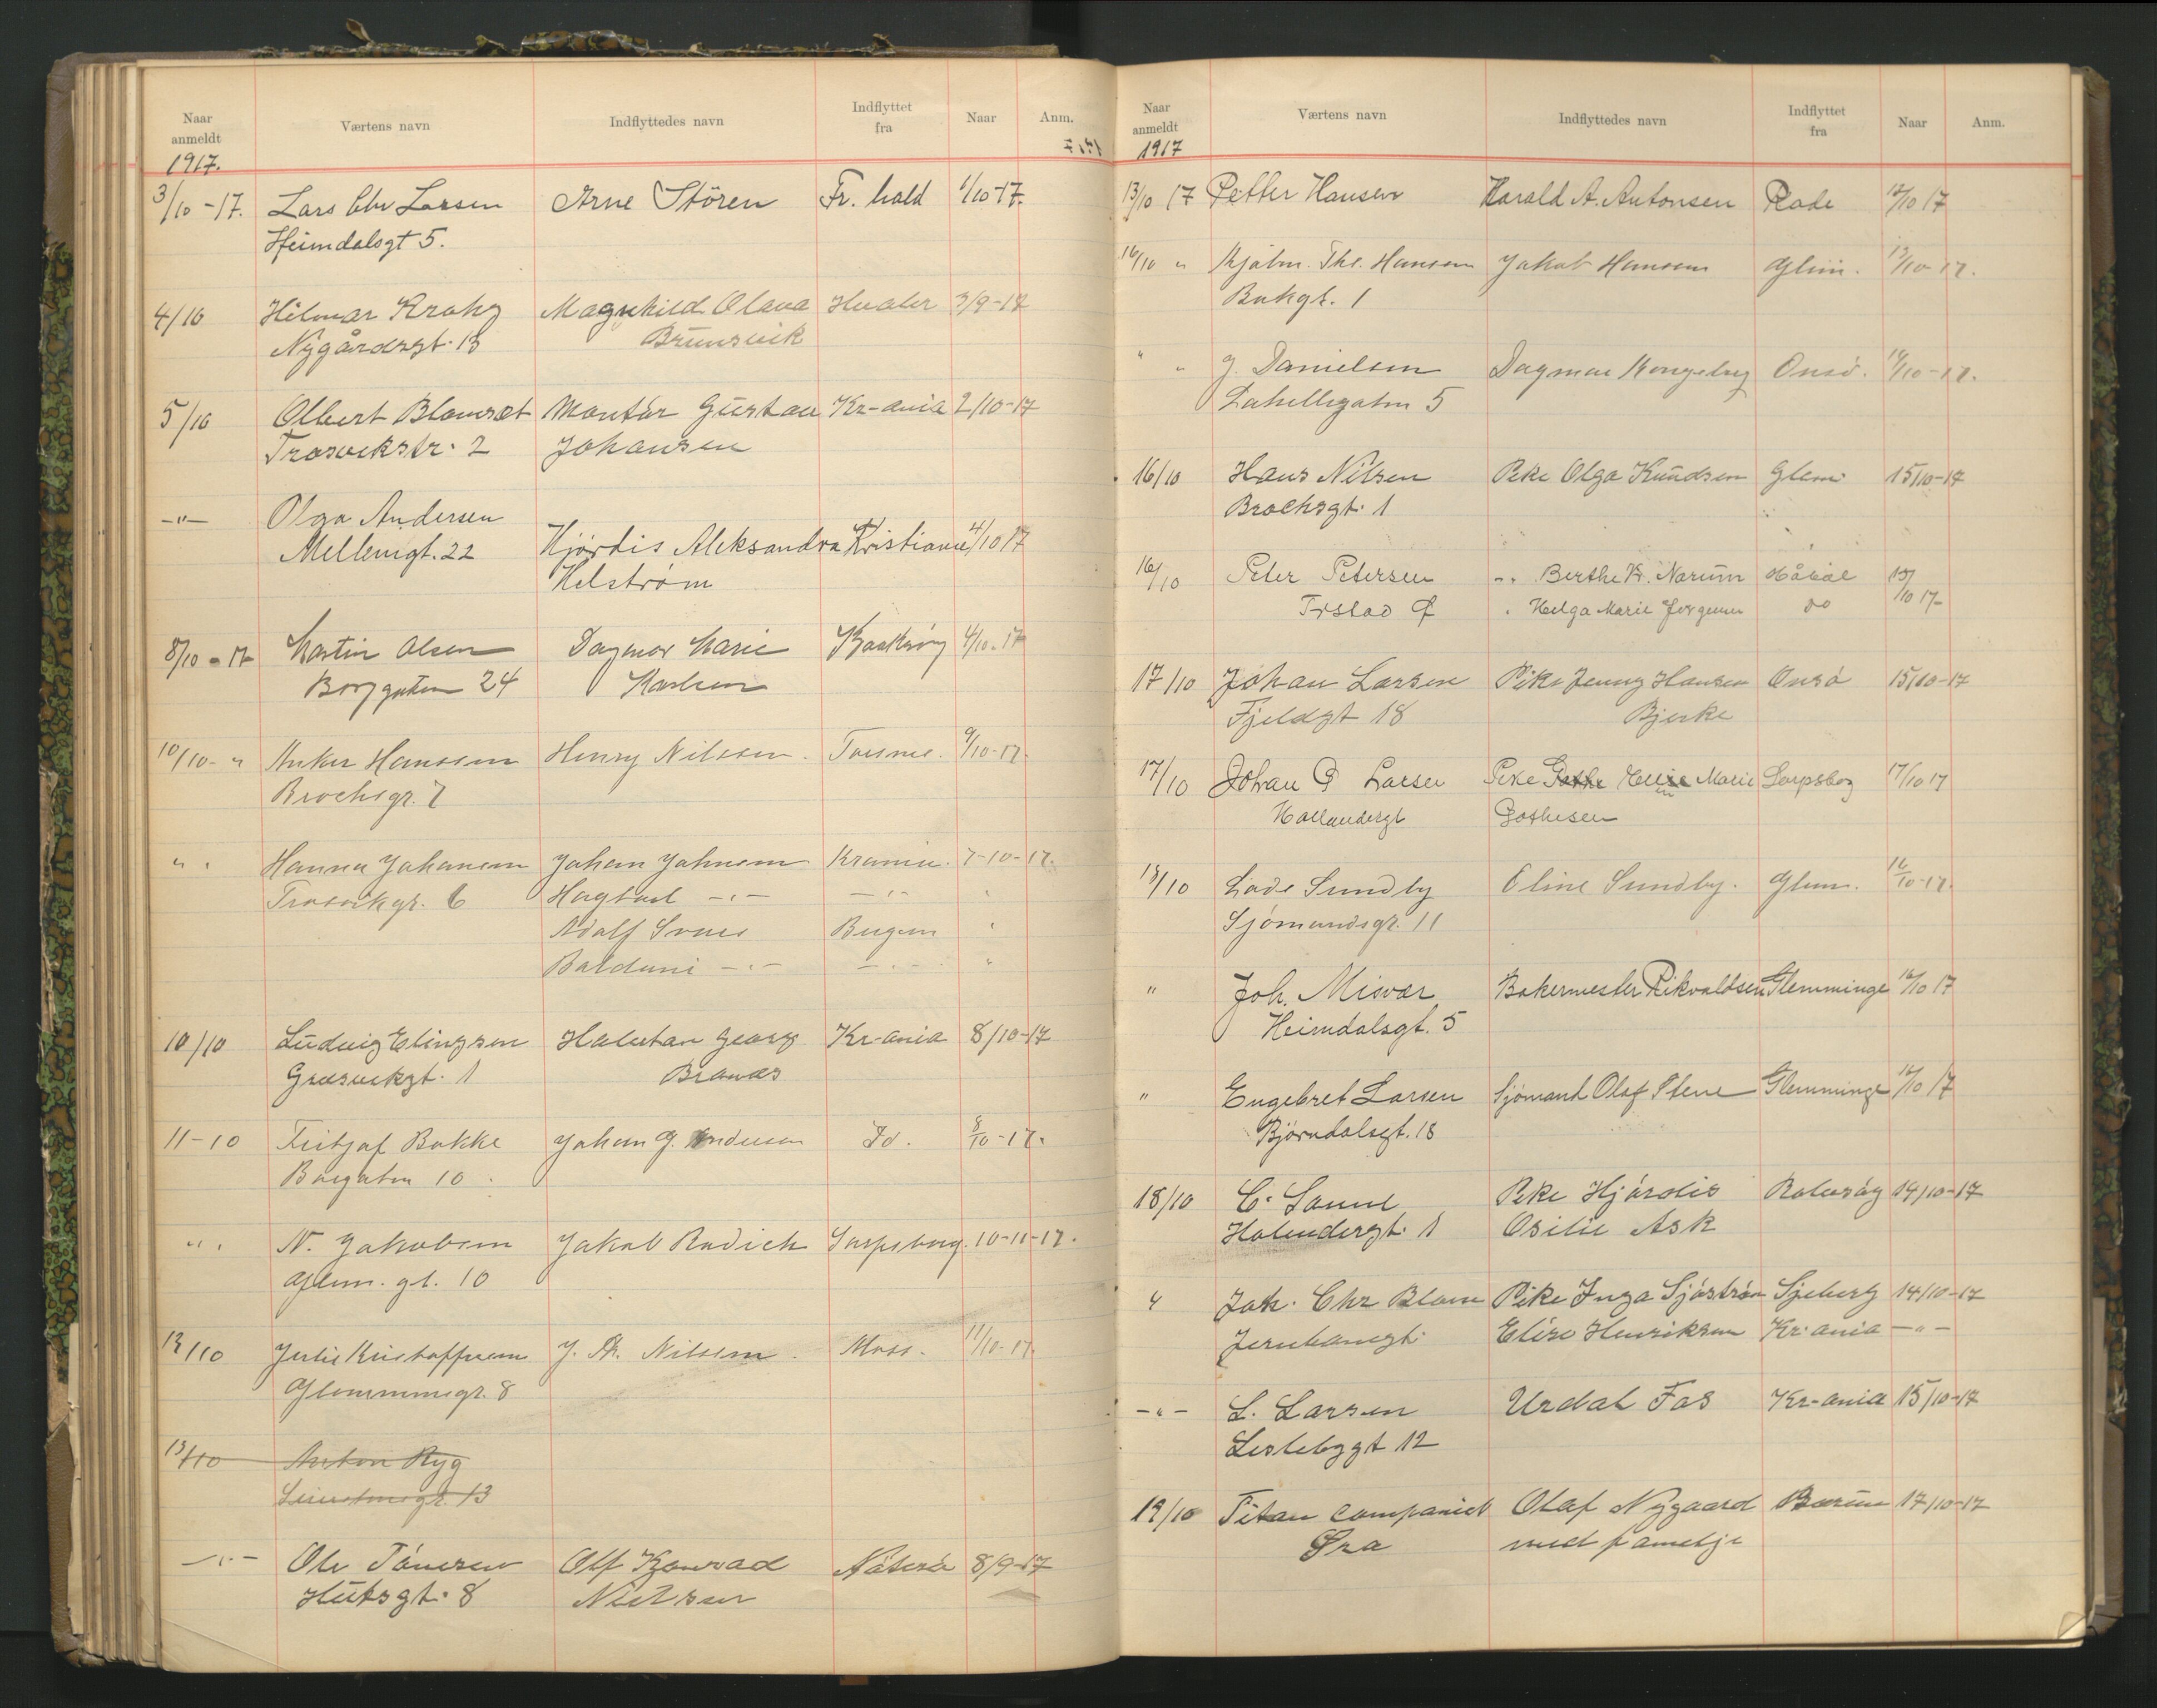 Naar anmeldt Værtens navn Indflyttedes navn Indflyttet fra Naar Anm.
1917.
3/10-17. Lars Chr Larsen Arne Stören Fr. hald 1/10-17.
Heimdalsgt 5.
4/10 Hilmar Krohg Magnhild Olava Hvaler 3/9-17
Nygårdsgt. 13 Brunsvik
5/10 Olbert Blomsøt Montör Gustav Kr-ania 2/10-17
Trosvikstr. 2 Johansen
-"- Olga Andersen
Mellemgt. 22 Hjördis Aleksandra Kristiania 4/10 17
Helström
8/10-17 Martin Olsen Dagmar Marie 4/10-17
Borggaten 24 Karlsen
10/10- " Anker Hanssen Henry Nilssen. Torsnes. 9/10-17.
Brochsgt. 7
" " Hanna Johansen Johan Johnsen Krania. 7-10-17.
Trosvikgt. 6 Hagbart -"- -"- "
Adolf Svaes Bergen "
Balduni -"- -"- "
10/10 Ludvig Elingsen Halvtan Georg Kr-ania 8/10-17
Gresvikgt. 1 Brawas
11-10 Fritjof Bakke Johan G. Andersen Id. 8/10-17.
Borgaten 10.
" " N. Jakobsen Jakob Radich Sarpsborg. 10-11-17.
Glem. gt. 10
12/10 Julie Kristoffersen J. Th. Nilssen. Moss. 11/10-17.
Glemmensgt. 8
13/10 Anton Ryg
13
-"- Ole Tönesen Olf Konrad Nöterö 8/9-17
Hütsgt. 8 Nielsen
Naar anmeldt Værtens navn Indflyttedes navn Indflyttet fra Naar Anm.
1917
13/10 17 Petter Hansen Harald A. Antonsen Rade 12/10 17
16/10 " Hjalm. Thr. Hansen Jakob Hanssen Glem. 13/10-17.
Bakgt. 1
" " J. Danielsen Dagmar Kongelug Onsö. 14/10-17.
Lahellegaten 5
16/10 Hans Nilsen Pike Olga Knudsen Glem 15/10-17
Brochsgt. 1
16/10 Peter Petersen -"- Berthe K. Narum Håböl 15/10 17-
Trstad Ø " Helga Marie Jorgensen do
17/10 Johan Larsen Pike Jenny Hansen Onsö 15/10-17
Fjeldgt 18 Bjerke
17/10 Johan G Larsen Pike Elise Marie Sarpsborg 17/10 17
Hollendergt Gothesen
18/10 Lade Sundby Eline Sundby. Glem. 16/10-17.
Sjömandsgt. 11
" Joh. Misvær Bakermester Rikvaldsen Glemminge 16/10 17
Heimdalsgt. 5
" Engebret Larsen Sjömand Olaf Stene Glemminge 16/10 17
Björndalsgt. 18
18/10 C. Sanne Pike Hjördis Rolvsöy 14/10-17
Holendergt. 1 Osilie Ask
" Joh. Chr Blom Pike Inga Sjöström Sjeberg 14/10-17
Jernbanegt. Elise Henriksen Kr.ania -"-
-"- L. Larsen Urdal Fas Kr-ania 15/10-17
Leslebygt 12
19/10 Titan companiet Olaf Nygaard Bærum 17/10-17
Øra med famelje